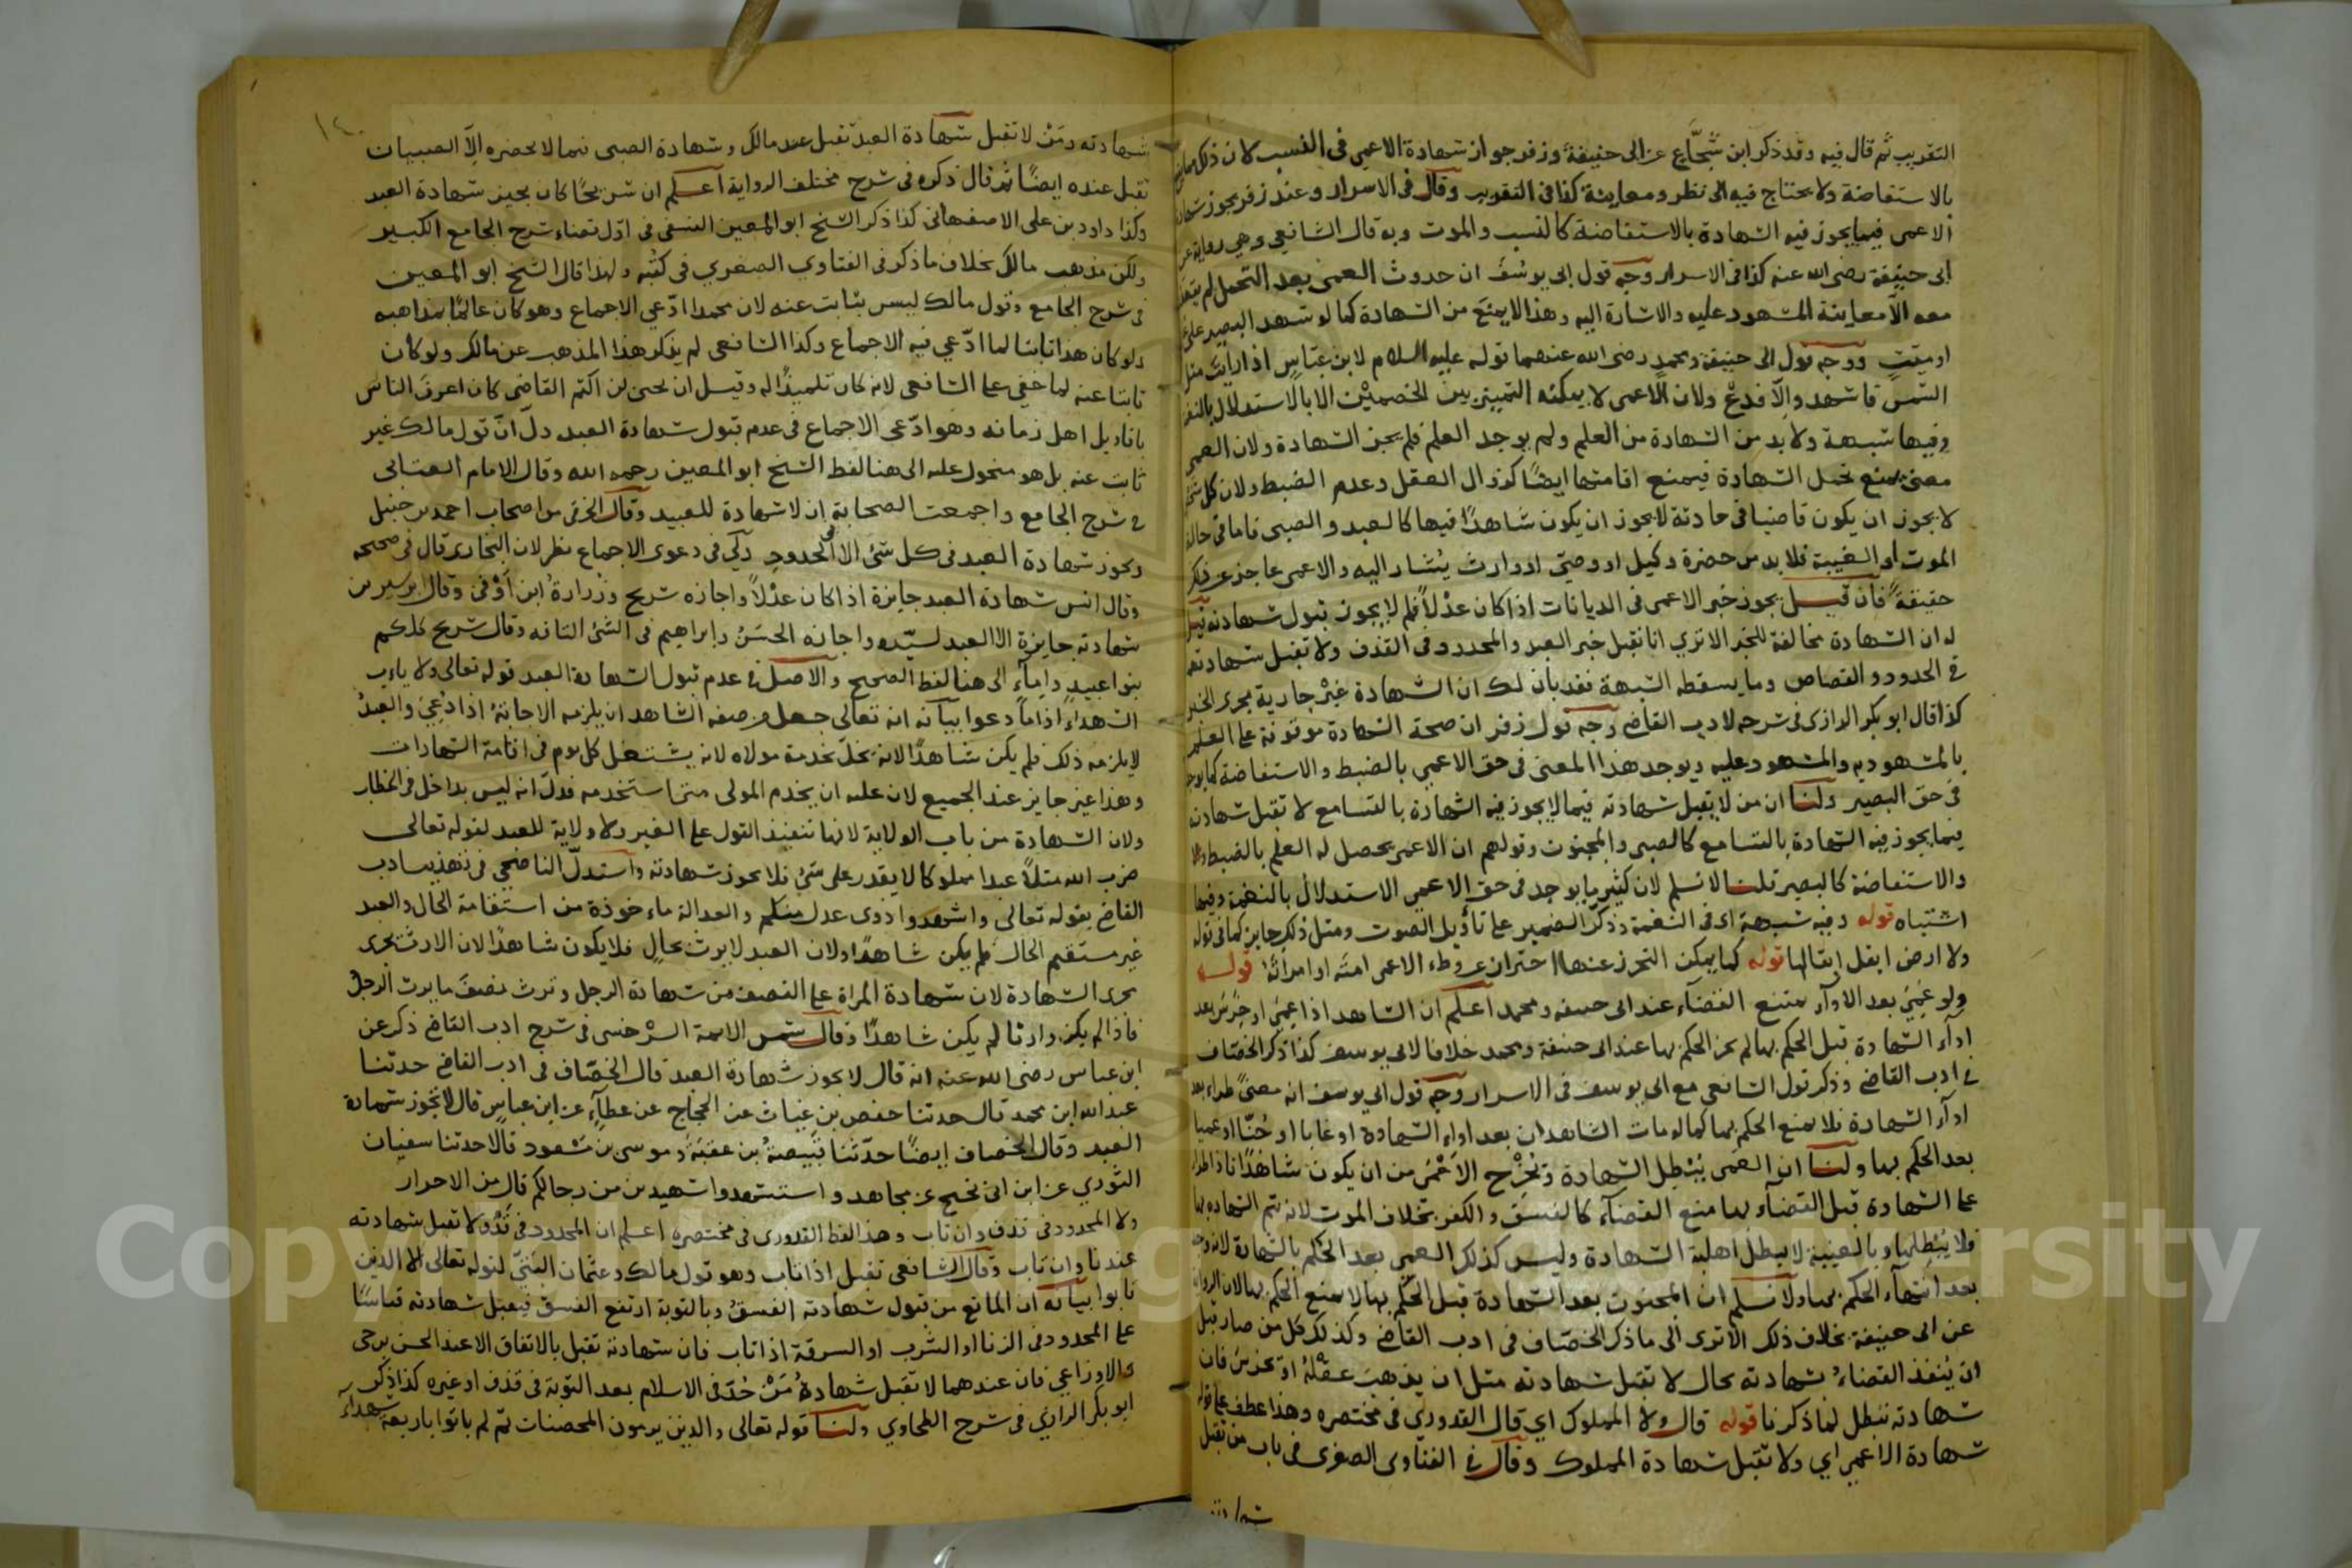 التقريب ثم قال فيه وقد ذكر ابن شجاع عن ابى حنيفة وزفر جواز شهادة الاعمى فى النسب لان ذلك
بالاستفاضة ولا يحتاج فيه الى نظر ومعاينة كذا فى التقريب وقال فى الاسرار وعند زفر يجوز شهادة
الاعمى فيما يجوز فيه الشهادة بالاستفاضة كالنسب والموت وبه قال الشافعي وهي رواية عن
ابى حنيفة رضى الله عنه كذا فى الاسرار وجه قول ابى يوسف ان حدوث العمى بعد التحمل لم
معه الا معاينة المشهود عليه والاشارة اليه وهذا لا يمنع من الشهادة كما لو شهد البصير على
او ميت ووجه قول ابى حنيفة ومحمد رضى الله عنهما قوله عليه السلام لابن عباس اذا رايت مثل
الشمس فاشهد والا فدع ولان الاعمى لا يمكنه التمييز بين الخصمين الا بالاستدلال بالنغمة
وفيها شبهة ولا بد من الشهادة من العلم ولم يوجد العلم فلم يجز الشهادة ولان العمى
معنى يمنع تحمل الشهادة فيمنع اقامتها ايضا كزوال العقل وعدم الضبط ولان كل من
لا يجوز ان يكون قاضيا فى حادثة لا يجوز ان يكون شاهدا فيها كالعبد والصبى فاما فى حالة
الموت او الغيبة فلا بد من حضرة وكيل او وصى او وارث يشار اليه والاعمى عاجز عن ذلك
حقيقة فان قيل يجوز خبر الاعمى فى الديانات اذا كان عدلا فلم لا يجوز قبول شهادته قيل
له ان الشهادة مخالفة للخبر الا تري انا نقبل خبر العبد والمحدود فى القذف ولا تقبل شهادتهم
فى الحدود والقصاص وما يسقطه الشبهة فقد بان لك ان الشهادة غير جارية مجرى الخبر
كذا قال ابو بكر الرازى فى شرحه لادب القاضى وجه قول زفر ان صحة الشهادة موقوفة على العلم
بالمشهود به والمشهود عليه ويوجد هذا المعنى فى حق الاعمي بالضبط والاستفاضة كما يوجد
فى حق البصير ولنا ان من لا يقبل شهادته فيما لا يجوز فيه الشهادة بالتسامع لا تقبل شهادته
فيما يجوز فيه الشهادة بالتسامع كالصبى والمجنون وقولهم ان الاعمى يحصل له العلم بالضبط
والاستفاضة كالبصير قلنا لا نسلم لان كثير ما يوجد فى حق الاعمى الاستدلال بالنغمة وفيها
اشتباه قوله وفيه شبهة اى فى النغمة وذكر الضمير على تأويل الصوت ومثل ذلك جايز كما فى قوله
ولا ارض ابقل ابقالها قوله كما يمكن التحرز عنها احتراز عن وطء الاعمى امته او امرأته قوله
ولو عمى بعد الاداء يمتنع القضاء عند ابى حنيفة ومحمد اعلم ان الشاهد اذا عمى او خرس بعد
اداء الشهادة قبل الحكم بها لم يجز الحكم بها عند ابى حنيفة ومحمد خلافا لابى يوسف كذا ذكر الخصاف
فى ادب القاضى وذكر قول الشافعى مع ابى يوسف فى الاسرار وجه قول ابى يوسف انه معنى طراء بعد
اداء الشهادة فلا يمنع الحكم بها كما لو مات الشاهدان بعد اداء الشهادة او غابا او جنا او عميا
بعد الحكم بها ولنا ان العمى يبطل الشهادة ويخرج الاعمى من ان يكون شاهدا فاذا طراء
على الشهادة قبل القضاء بها منع القضاء كالفسق والكفر بخلاف الموت لانه يتم الشهادة بها
فلا يبطلها وبالغيبة لا يبطل اهلية الشهادة وليس كذلك العمى بعد الحكم بالشهادة لانه
بعد انتهاء الحكم بها ولا نسلم ان المجنون بعد الشهادة قبل الحكم بها لا يمنع الحكم بها لان الرواية
عن ابى حنيفة بخلاف ذلك الا ترى الى ما ذكر الخصاف فى ادب القاضى وكذلك كل من صار قبل
ان ينفذ القضاء شهادته بحال لا تقبل شهادته مثل ان يذهب عقله او يخرس فان
شهادته تبطل لما ذكرنا قوله قال ولا المملوك اي قال القدوري فى مختصره وهذا عطف على قوله
شهادة الاعمى اي ولا تقبل شهادة المملوك وقال فى الفتاوى الصغرى فى باب من تقبل
شهادته
١٤٠
شهادته ومن لا تقبل شهادة العبد تقبل عند مالك وشهادة الصبى فيما لا يحضره الا الصبيان
تقبل عنده ايضا ثم قال ذكره فى شرح مختلف الرواية اعلم ان شريحا كان يجيز شهادة العبد
وكذا داود بن على الاصفهانى كذا ذكر الشيخ ابو المعين النسفى فى اول قضاء شرح الجامع الكبير
ولكن مذهب مالك بخلاف ما ذكر فى الفتاوي الصغري فى كتبه ولهذا قال الشيخ ابو المعين
فى شرح الجامع وقول مالك ليس بثابت عنه لان محمدا ادعي الاجماع وهو كان عالما بمذاهبه
ولو كان هذا ثابتا لما ادعي فيه الاجماع وكذا الشافعى لم يذكر هذا المذهب عن مالك ولو كان
ثابتا عنه لما خفي على الشافعى لانه كان تلميذا له وقيل ان يحيى بن اكثم القاضى كان اعرف الناس
باقاويل اهل زمانه وهو ادعى الاجماع فى عدم قبول شهادة العبد دل ان قول مالك غير
ثابت عنه بل هو منحول عليه الى هنا لفظ الشيخ ابو المعين رحمه الله وقال الامام العتابى
فى شرح الجامع واجمعت الصحابة ان لا شهادة للعبيد وقال الخرقى من اصحاب احمد بن حنبل
ويجوز شهادة العبد فى كل شئ الا فى الحدود ولى فى دعوى الاجماع نظر لان البخارى قال فى صحيحه
وقال انس شهادة العبد جايزة اذا كان عدلا واجازه شريح وزرارة ابن اوفى وقال ابن سيرين
شهادته جايزة الا العبد لسيده واجازه الحسن وابراهيم فى الشئ التافه وقال شريح كلكم
بنو عبيد واماء الى هنا لفظ الصحيح والاصل فى عدم قبول الشهادة العبد قوله تعالى ولا ياءب
الشهداء اذا ما دعوا بيانه انه تعالى جعل من صفة الشاهد ان يلزمه الاجابة اذا دعى والعبد
لا يلزمه ذلك فلم يكن شاهدا لانه يخل بخدمة مولاه لانه يشتغل كل يوم فى اقامة الشهادات
وهذا غير جايز عند الجميع لان عليه ان يخدم المولى متى استخدمه فدل انه ليس بداخل فى الخطاب
ولان الشهادة من باب الولاية لانها تنفيذ القول على الغير ولا ولاية للعبد لقوله تعالى
ضرب الله مثلا عبدا مملوكا لا يقدر على شئ فلا يجوز شهادته واستدل الناصحي فى تهذيب ادب
القاضى بقوله تعالى واشهدوا ذوى عدل منكم والعدالة ماءخوذة من استقامة الحال والعبد
غير مستقيم الحال فلم يكن شاهدا ولان العبد لا يرث بحال فلا يكون شاهدا لان الارث يجرى
مجرى الشهادة لان شهادة المراة على النصف من شهادة الرجل وترث نصف ما يرث الرجل
فاذا لم يكن وارثا لم يكن شاهدا وقال شمس الائمة السرخسى فى شرح ادب القاضى ذكر عن
ابن عباس رضى الله عنه انه قال لا يجوز شهادة العبد قال الخصاف فى ادب القاضى حدثنا
عبد الله ابن محمد قال حدثنا حفص بن غياث عن الحجاج عن عطاء عن ابن عباس قال لا تجوز شهادة
العبد وقال الخصاف ايضا حدثنا قبيصة بن عقبة وموسى بن مسعود قالا حدثنا سفيان
الثوري عن ابن ابى نجيح عن مجاهد واستشهدوا شهيدين من رجالكم قال من الاحرار
ولا المحدود فى قذف وان تاب وهذا لفظ القدورى فى مختصره اعلم ان المحدود فى قذف لا تقبل شهادته
عندنا وان تاب وقال الشافعى تقبل اذا تاب وهو قول مالك وعثمان البتى لقوله تعالى الا الذين
تابوا بيانه ان المانع من قبول شهادته الفسق وبالتوبة ارتفع الفسق فيقبل شهادته قياسا
على المحدود فى الزنا او الشرب او السرقة اذا تاب فان شهادته تقبل بالاتفاق الا عند الحسن بن حى
والاوزاعي فان عندهما لا تقبل شهادة من حد فى الاسلام بعد التوبة فى قذف او غيره كذا ذكر
ابو بكر الرازى فى شرح الطحاوي ولنا قوله تعالى والذين يرمون المحصنات ثم لم ياتوا باربعة شهداء